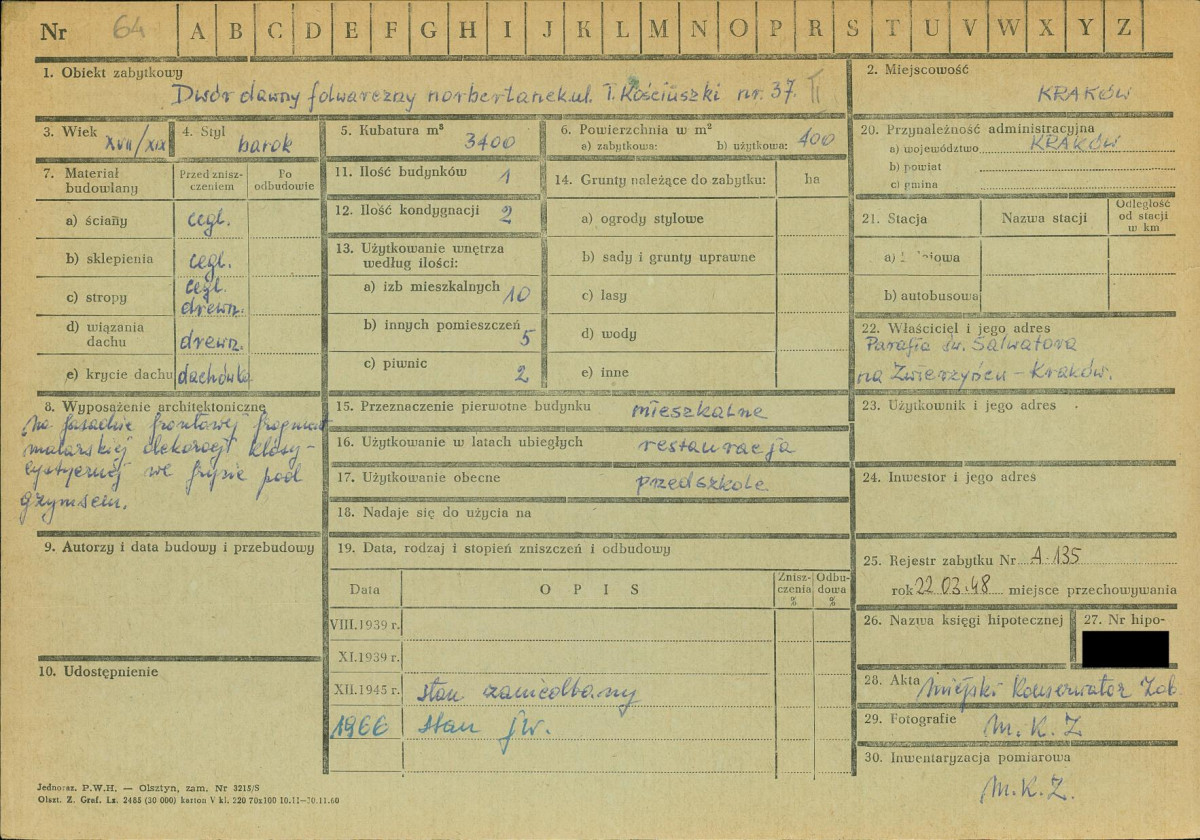 Nr 64 A B C D E F G H I J K L M N O P R S T U V W X Y Z
1. Obiekt zabytkowy
Dwór dawny folwarczny norbertanek ul. T. Kościuszki nr. 37. II
2. Miejscowość
KRAKÓW
3. Wiek XVII/XIX
4. Styl barok
5. Kubatura m³ 3400
6. Powierzchnia w m²
a) zabytkowa: b) użytkowa: 400
7. Materiał budowlany
Przed zniszczeniem
Po odbudowie
a) ściany cegl.
b) sklepienia cegl.
c) stropy cegl. drewn.
d) wiązania dachu drewn.
e) krycie dachu dachówka
8. Wyposażenie architektoniczne
Na fasadzie frontowej fragment
malarskiej dekoracji klasy-
cystycznej we fryzie pod
gzymsem.
9. Autorzy i data budowy i przebudowy
10. Udostępnienie
11. Ilość budynków 1
12. Ilość kondygnacji 2
13. Użytkowanie wnętrza
według ilości:
a) izb mieszkalnych 10
b) innych pomieszczeń 5
c) piwnic 2
14. Grunty należące do zabytku: ha
a) ogrody stylowe
b) sady i grunty uprawne
c) lasy
d) wody
e) inne
15. Przeznaczenie pierwotne budynku mieszkalne
16. Użytkowanie w latach ubiegłych restauracja
17. Użytkowanie obecne przedszkole
18. Nadaje się do użycia na
19. Data, rodzaj i stopień zniszczeń i odbudowy
Data OPIS Zniszczenia % Odbudowa %
VIII.1939 r.
XI.1939 r.
XII.1945 r. stan zaniedbany
1966 stan jw.
20. Przynależność administracyjna
a) województwo KRAKÓW
b) powiat
c) gmina
21. Stacja Nazwa stacji Odległość od stacji w km
a)
b) autobusowa
22. Właściciel i jego adres
Parafia św. Salwatora
na Zwierzyńcu – Kraków.
23. Użytkownik i jego adres
24. Inwestor i jego adres
25. Rejestr zabytku Nr A-135
rok 22.03.48 miejsce przechowywania
26. Nazwa księgi hipotecznej
27. Nr hipo-
28. Akta Miejski Konserwator Zab.
29. Fotografie M.K.Z
30. Inwentaryzacja pomiarowa
M.K.Z.
Jednoraz. P.W.H. — Olsztyn, zam. Nr 3215/S
Olszt. Z. Graf. Lz. 2485 (30 000) karton V kl. 220 70x100 10.11—30.11.60